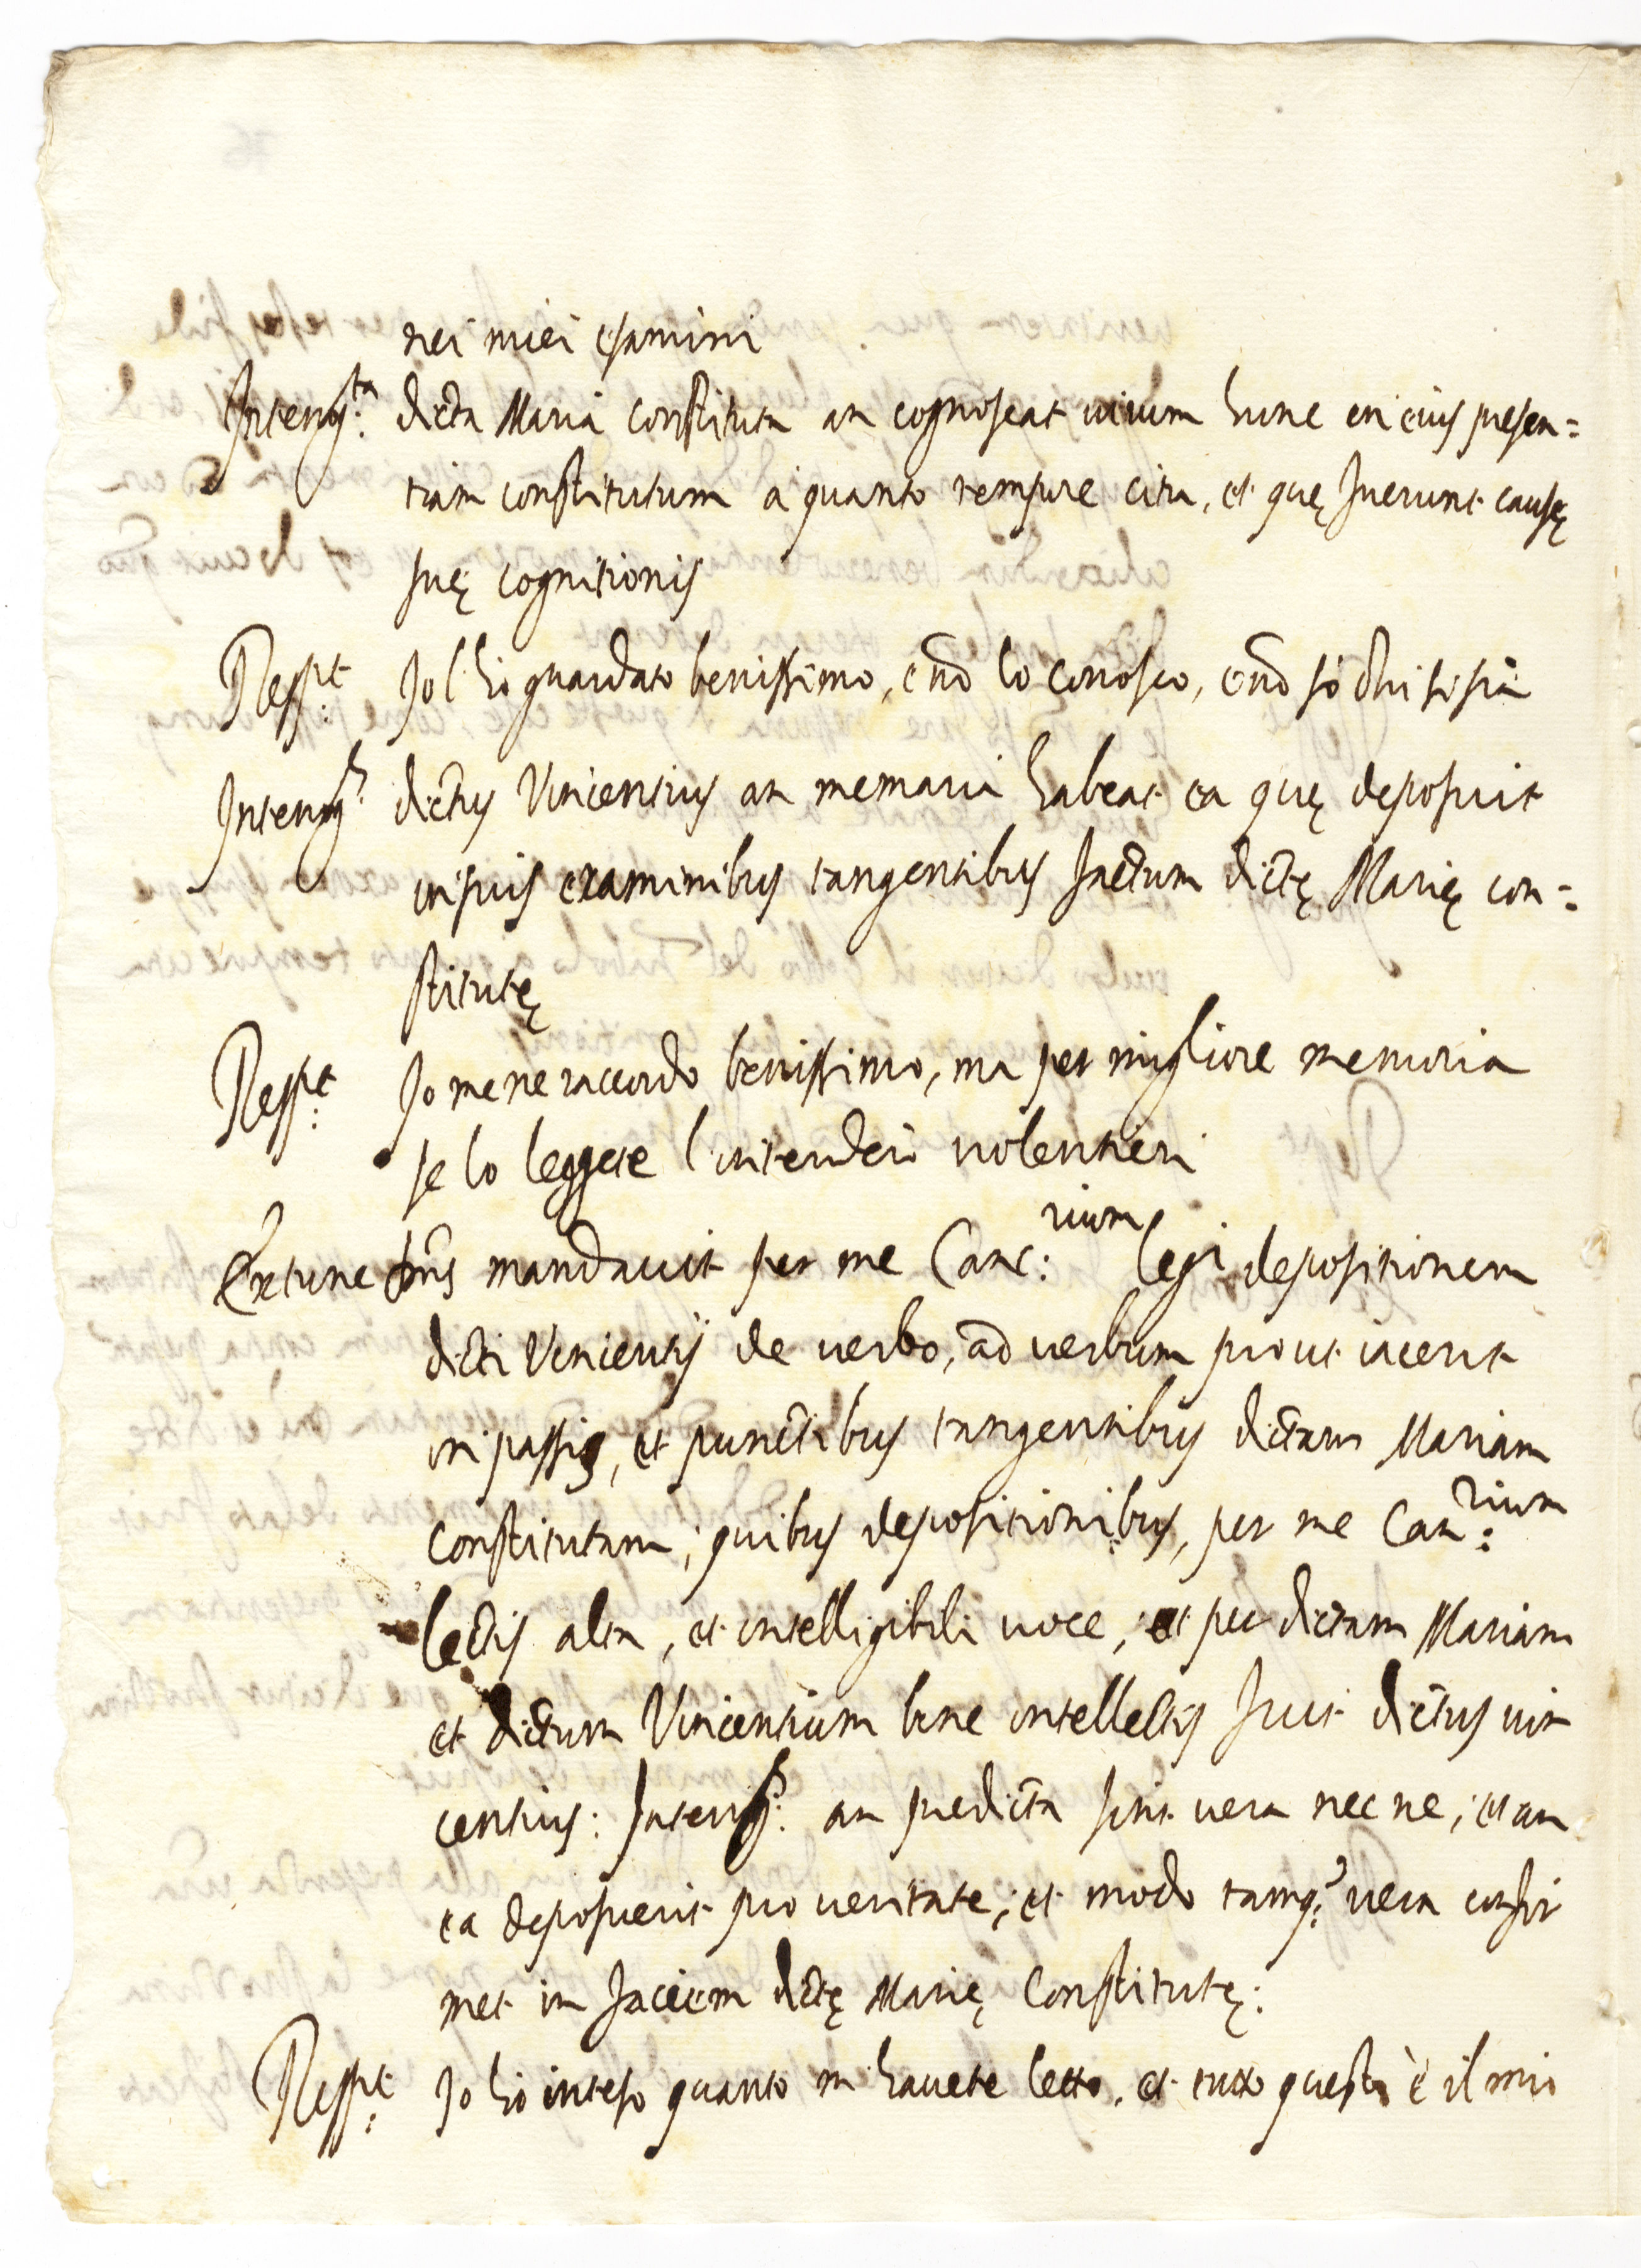 nei miei esamini
Interog.ta dicta Maria Constituta an cognoscat uirum hunc in eius presen=
tiam constitutum a quanto tempore citra, et quę fuerunt causę
suę cognitionis
Resp.t Io l'hò guardato benissimo, e nō lo conosco, e nō sò chi si sia
Interog.s dictus Vincentius an memoria habeat ea quę deposuit
in suis examinibus tangentibus factum dictę Marię con=
stitutę
Resp.t Io me ne raccordo benissimo, ma per migliore memoria
se lo leggete l'intenderò uolentieri
Extunc Dn̄s mandauit per me Canc:rium legi depositionem
dicti Vincentij de uerbo, ad uerbum prout iacent
in passis, et punctibus tangentibus dictam Mariam
Constitutam; quibus depositionibus, per me Can:rium
lectis alta, et intelligibili uoce, et per dictam Mariam
et dictum Vincentium bene intellectis fuit dictus uin
centius: Interog.s: an predicta sint uera nec ne; et an
ea deposuerit pro ueritate; et modo tamq.̃ uera confir
met in faciem dictę Marię Constitutę:
Resp.t Io hò inteso quanto m hauete letto, et tutto questo è il mio